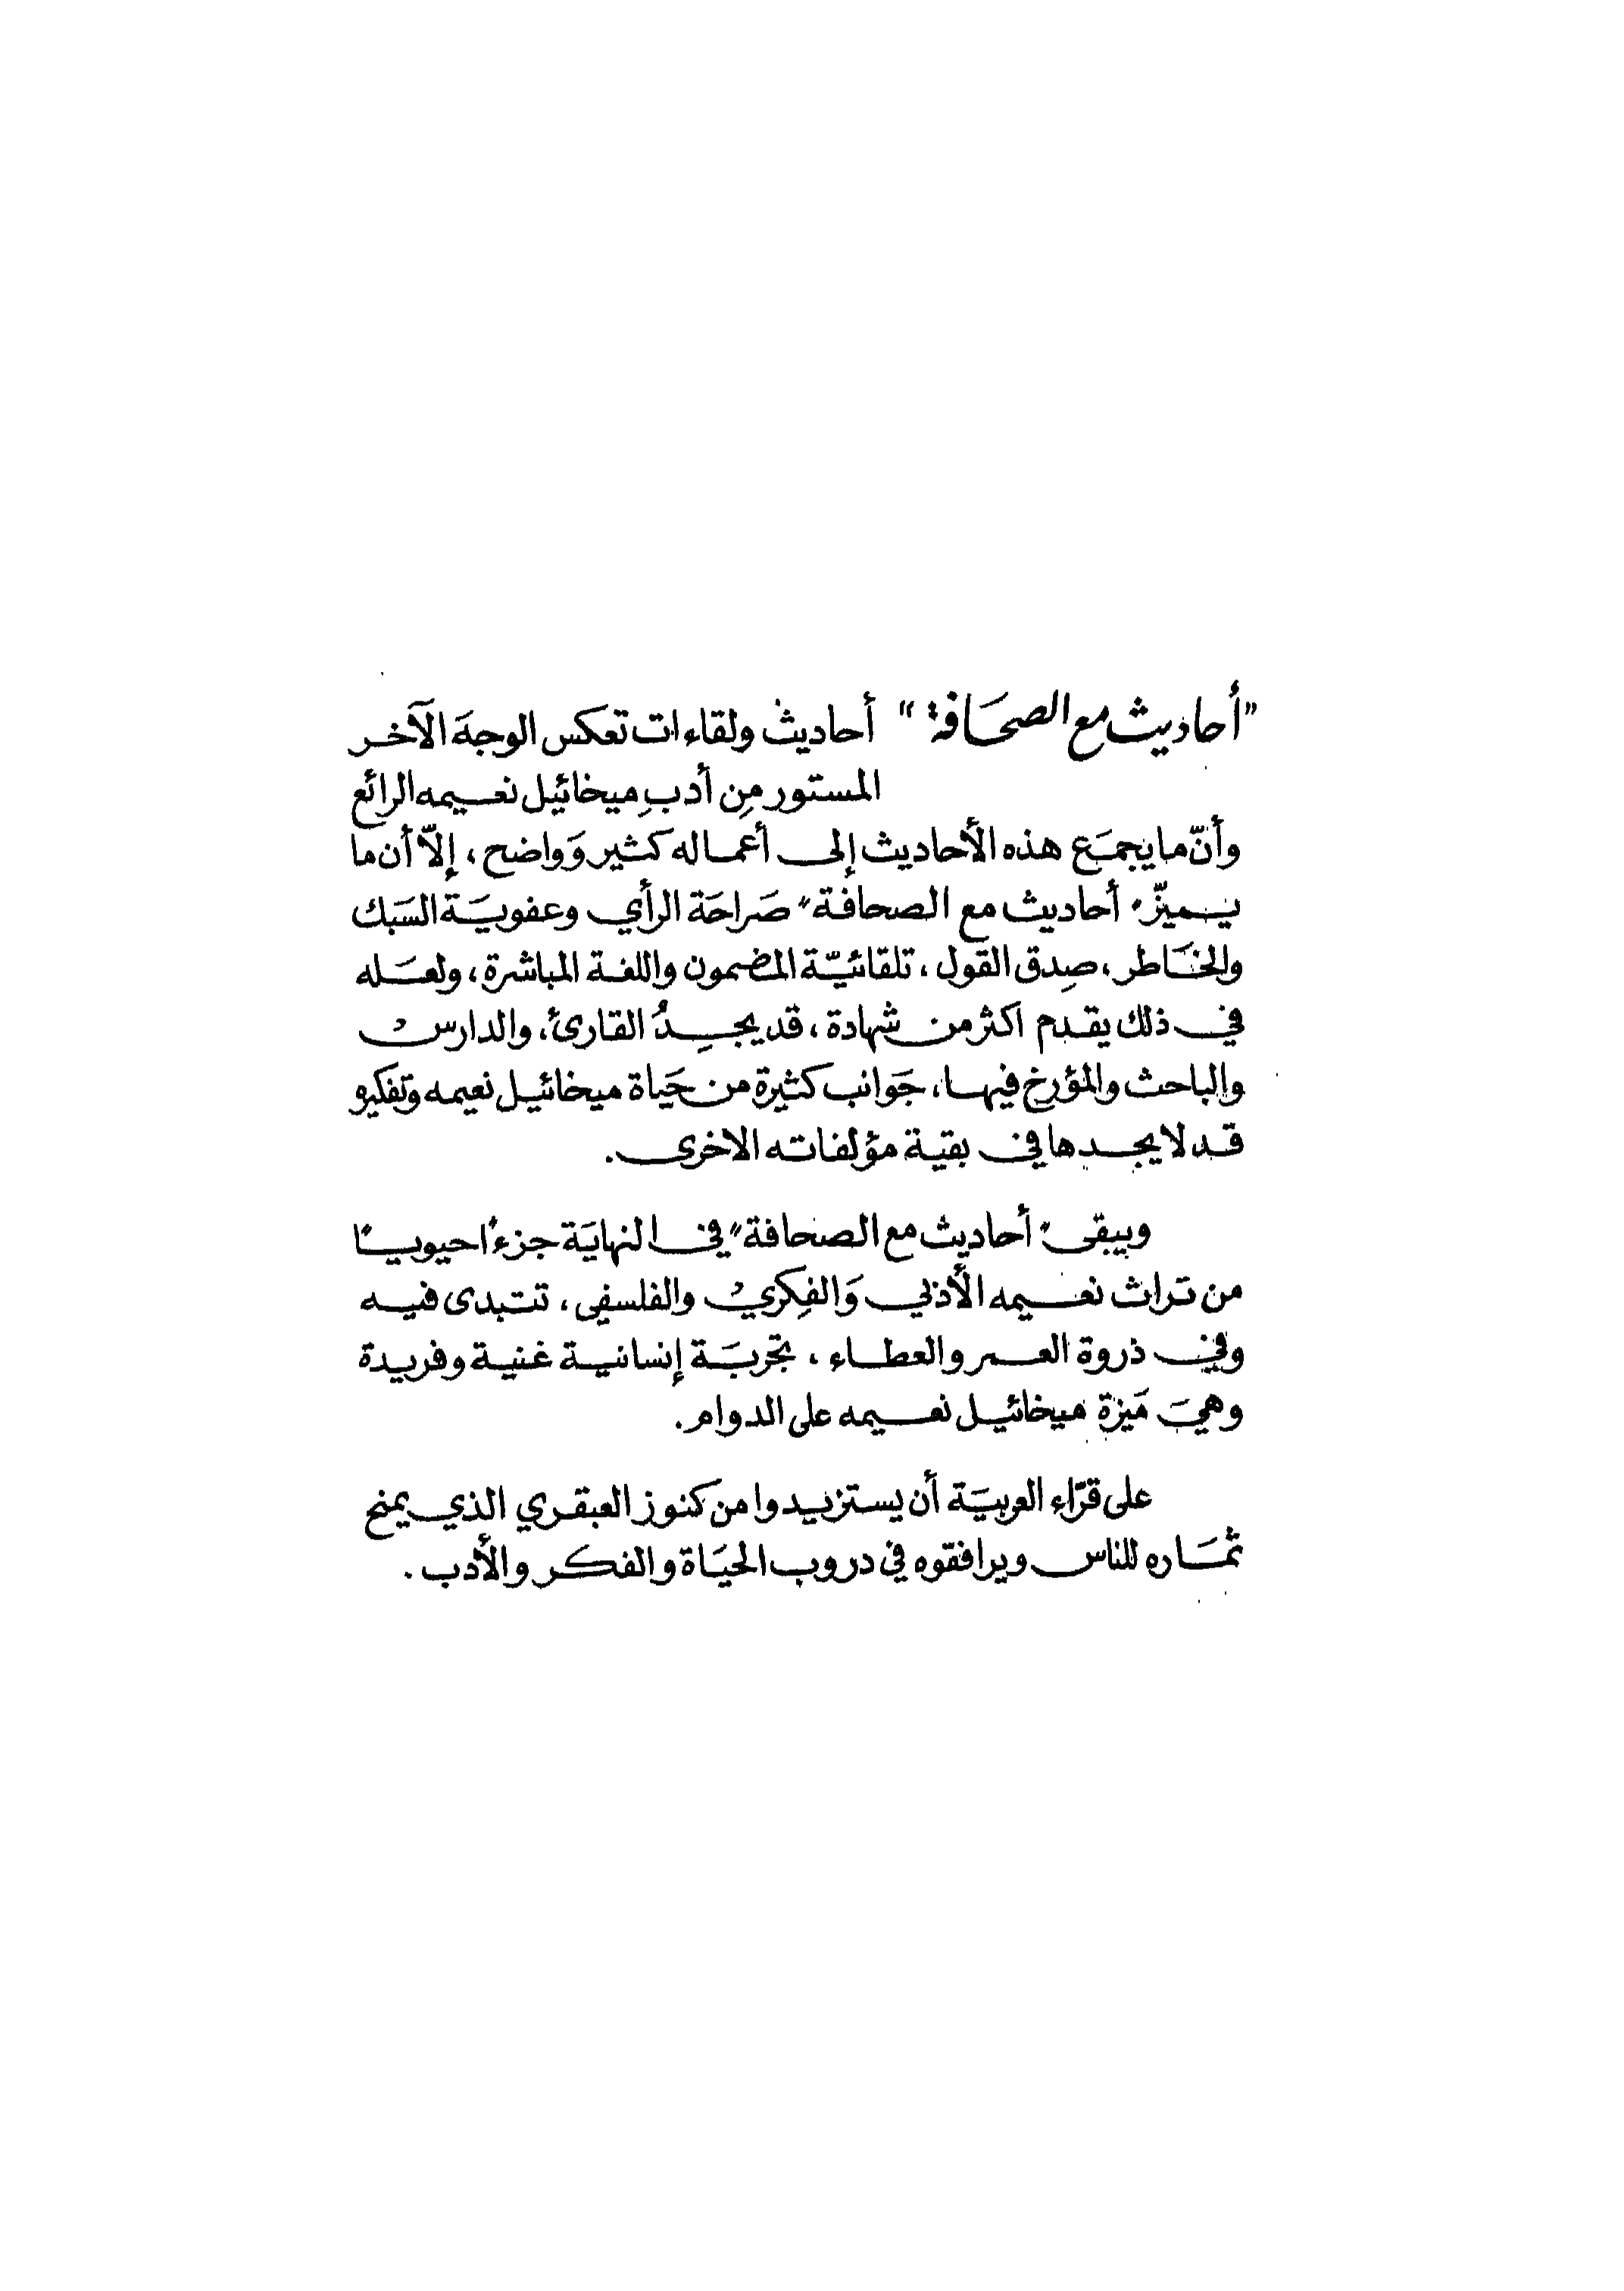 "أحاديث مع الصحَافة" أحاديث ولقاءات تعكس الوجهَ الآخر
المستور مِن أدبِ ميخائيل نعيمه الرائع
وأنّ ما يجمَع هذه الأحاديث إلى أعماله كثير وَواضح، إلاّ أن ما
يميزّ "أحاديث مع الصحافة" صَراحَة الرأي وعفويَة السَبك
والخَاطر، صِدق القول، تلقائيّة المضمون واللغة المباشرة، ولعَله
في ذلك يقدم اكثر من شهادة، قد يجِدُ القارئ، والدارسُ
والباحث والمؤرخ فيها، جَوانب كثيرة من حَياة ميخائيل نعيمه وتفكيره
قد لا يجدها في بقية مؤلفاته الاخرى.
ويبقى "أحاديث مع الصحافة" في النهايَة جزءًا حيويًا
من تراث نعيمه الأدبي وَالفِكريُ والفلسفي، تتبدى فيه
وفي ذروة العمر والعطاء، تجربَة إنسانية غنية وفريدة
وهيَ مَيزة ميخائيل نعيمه على الدوام.
على قرّاء العربيَة أن يستزيدوا من كنوز العبقري الذي يمنح
ثمَاره للناس ويرافقوه في دروب الحيَاة والفكر والأدب.